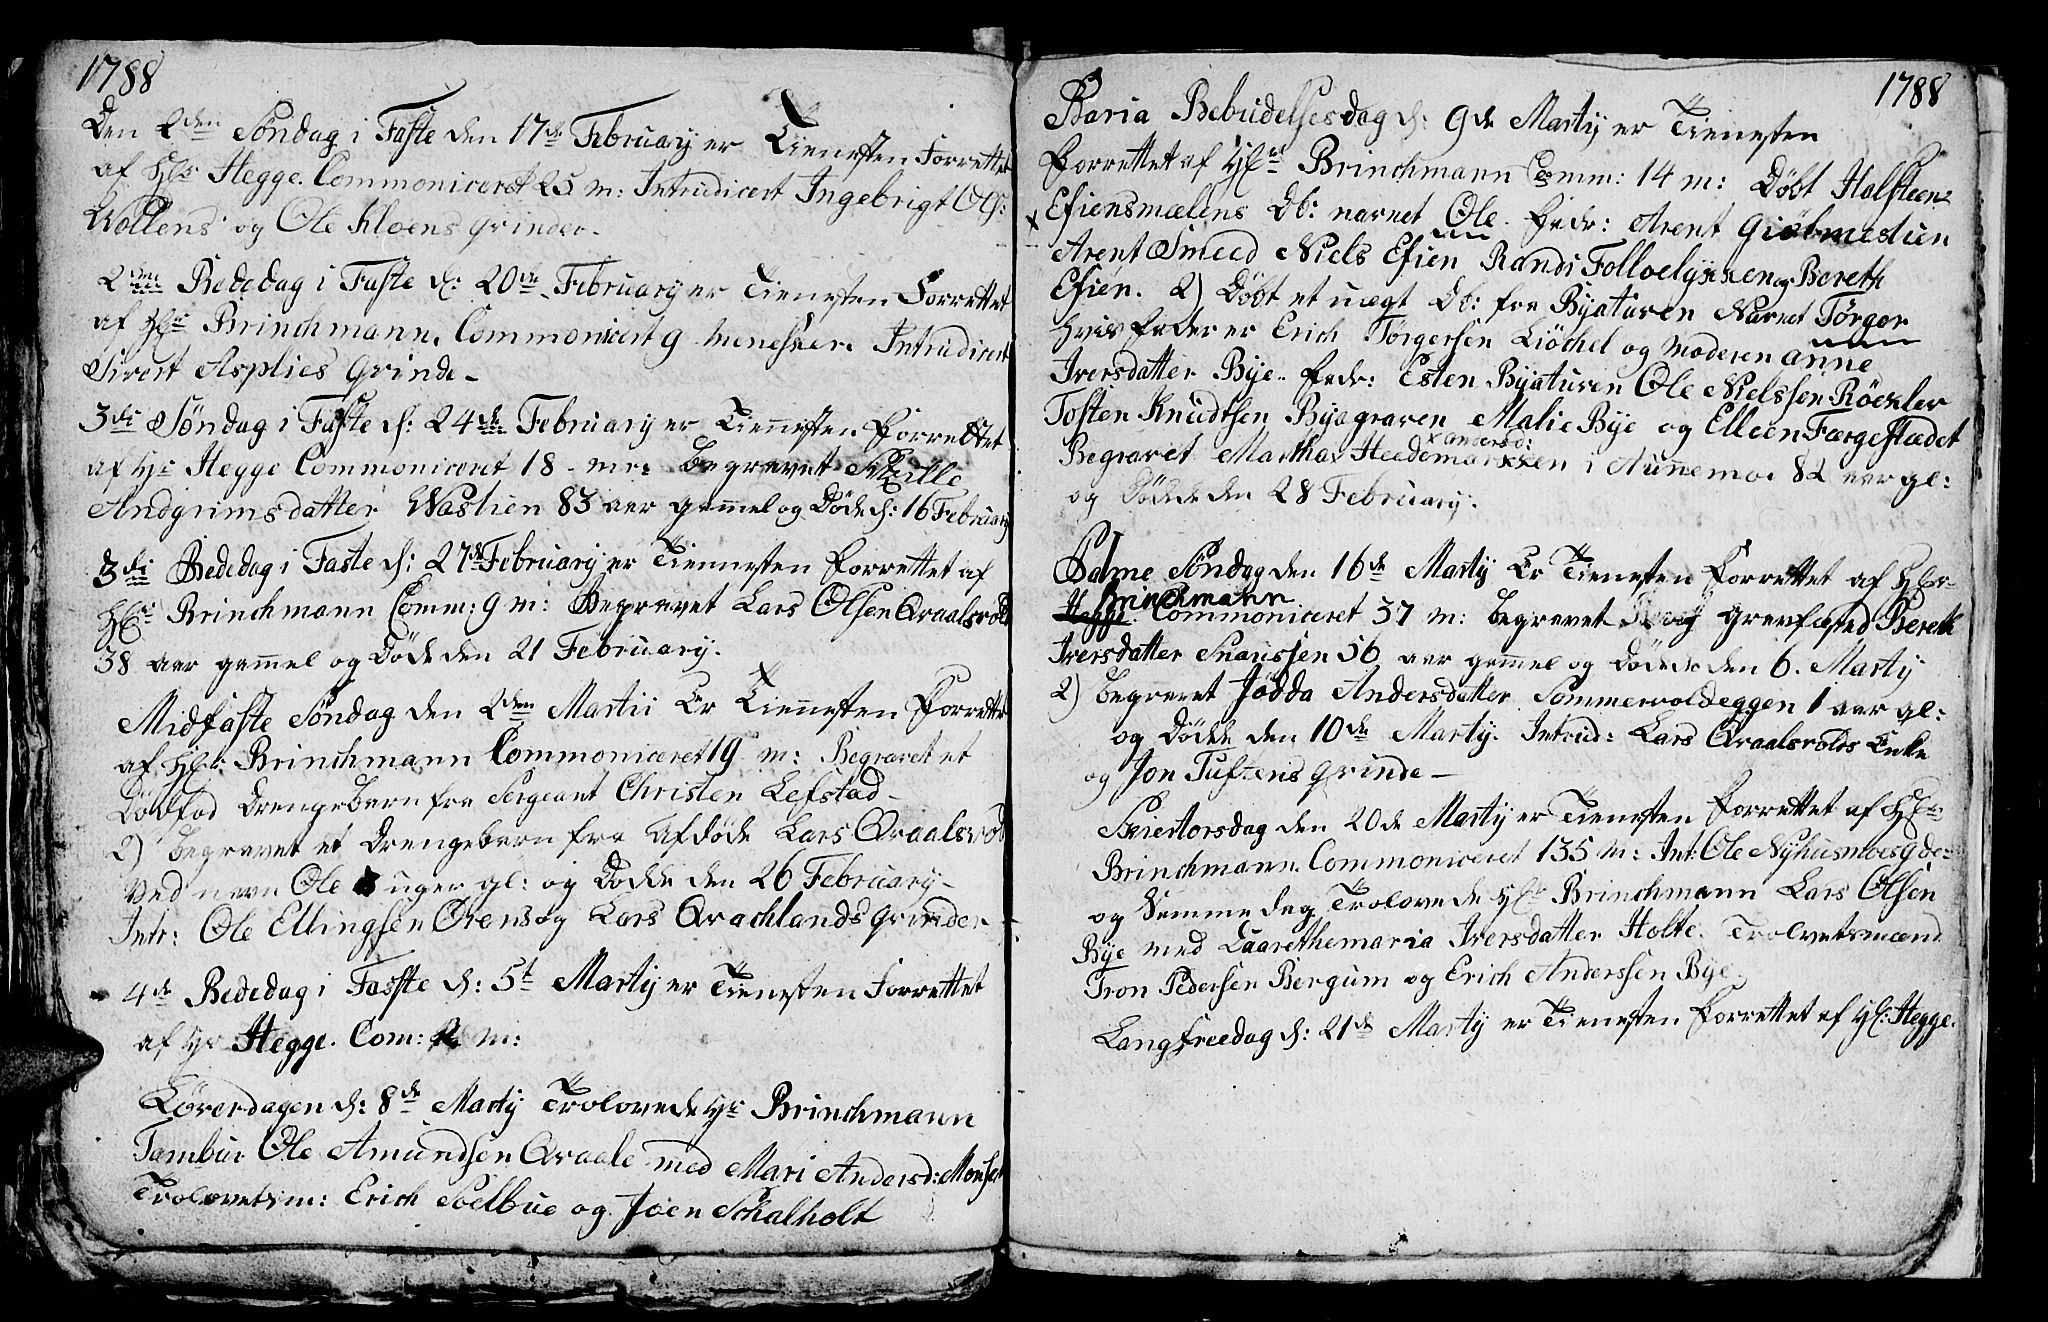 1788
Den 2den Søndag i Faste den 17de February er Tienesten Forrettet
af Hr: Hegge. Commoniceret 25 m: Intrudicert Ingebrigt Ols:
Wollens og Ole Kloens grinder.
2den Bededag i Faste d: 20de February er Tienesten Forrettet
af Hr: Brinchmann. Commonicert 9 menesker. Intrudicert
Sivert Asplies Grinde
3die Søndag i Faste d: 24de February er Tiennesten Forrettet
af Hr Hegge Commoniceret 18 m: Begravet
Andgrimsdatter Wastien 83 aar gammel og Døde d: 16 February
3die Bededag i Faste d: 27de February er Tiennesten Forrettet af
Hr: Brinchmann Comm: 9 m: Begravet Lars Olsen Qraalsvold
38 aar gammel og Døde den 21 February.
Midfaste Søndag den 2den Martii Er Tiennesten Forrettet
af Hr: Brinchmann Commoniceret 19 m: Begravet et
Døbfød Drengebarn fra Sergeant Christen Lefstad
2) Begravet et Drengebarn fra Afdøde Lars Qraalsvold
ved navn Ole uger gl: og Dødde den 26 February
Intr: Ole Ellingsen Ørens og Lars Qrachlands grinder
4de Bededag i Faste d: 5t Marty er Tienesten Forrettet
af Hr Hegge. Com: m:
Løverdagen d: 8de Marty Trolovede Hr Brinchmann
Tambur Ole Amundsen Qraale med Mari Andersd: Monset
Trolovetsm: Erich Soelbue og Joen Schalholt
1788
Maria Bebudelsesdag d: 9de Marty er Tienesten
Forrettet af Hr Brinchmann Comm: 14 m: Døbt Halsteen
Efiensmælens Db: navnet Ole. Fadr: Arent Giöbmedien
Arent Smeed Niels Efien Randi Folloelykken og Bereth
Efien. 2) Døbt et uægt Db: fra Byaturen Navnet Törger
hvis Fader er Erich Törgersen Liöchel og Moderen Anne
Iversdatter Bye. Fadr: Esten Byaturen Ole Nielssen Röehler
Tosten Knudtsen Byagraven Malie Bye og Elleen Færgestædet
x andersd:
Begravet Martha x Heedemarkken i Aunemoe 82 aar gl:
og Dödde den 28 February.
Palme Söndag den 16de Marty Er Tienesten Forrettet af Hr
Brinchmann
Hegge. Commoniceret 37 m: begravet og gravfæsted Bereth
Iversdatter Snaussen 56 aar gammel og Dödde den 6. Marty
2) begravet Jödda Andersdatter Sommervoldeggen 1 aar gl:
og Dödde den 10de Marty. Intrud: Lars Qraalsvolds Enke
og Jon Tuftens grinde
Skiertorsdag den 20de Marty er Tienesten Forrettet af Hr:
Brinchmann. Commoniceret 135 m: Int: Ole Nyhusmoes g de
og Samme dag Trolovede Hr Brinchmann Lars Olsen
Bye med Laarethemaria Iversdatter Holte. Trolvetsmænd
Tron Pedersen Bergum og Erich Anderssen Bye.
Langfreedag d: 21de Marty er Tienesten Forrettet af Hr: Hegge.